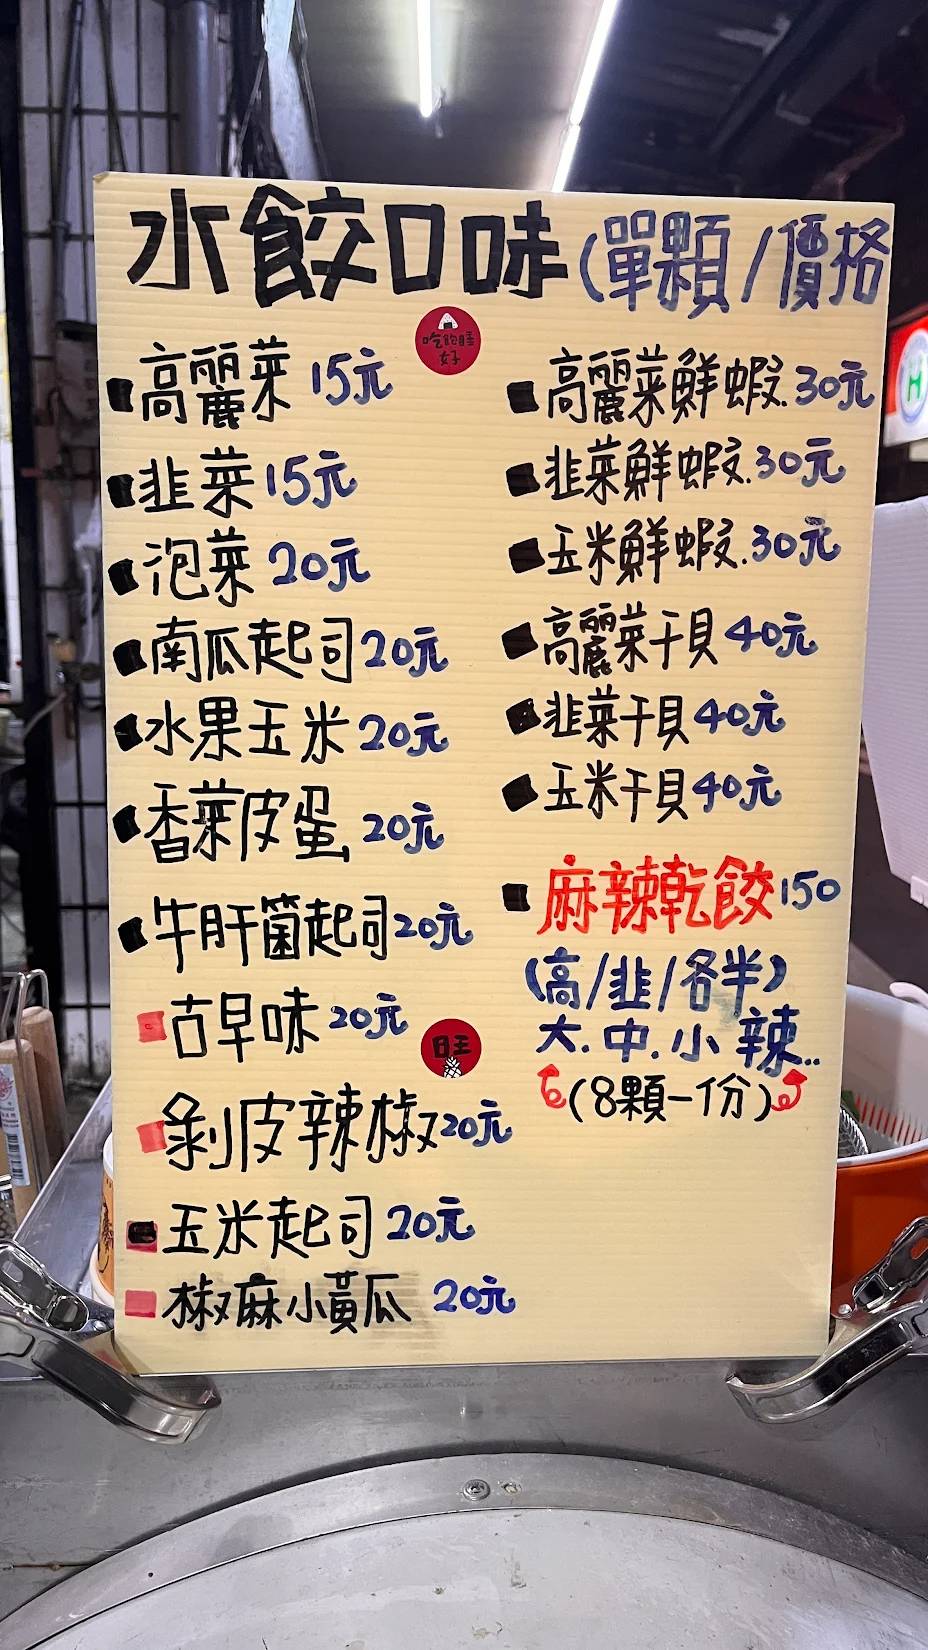 水餃口味(單顆/價格
吃飽睡
好
■高麗菜 15元
■韭菜 15元
■泡菜 20元
■南瓜起司20元
■水果玉米 20元
■香菜皮蛋 20元
■牛肝菌起司20元
■古早味 20元
旺
■剝皮辣椒20元
■玉米起司 20元
■椒麻小黃瓜 20元
■高麗菜鮮蝦.30元
■韭菜鮮蝦.30元
■玉米鮮蝦.30元
■高麗菜干貝 40元
■韭菜干貝 40元
■玉米干貝 40元
■麻辣乾餃150
(高/韭/各半)
大.中.小辣..
(8顆一份)
H